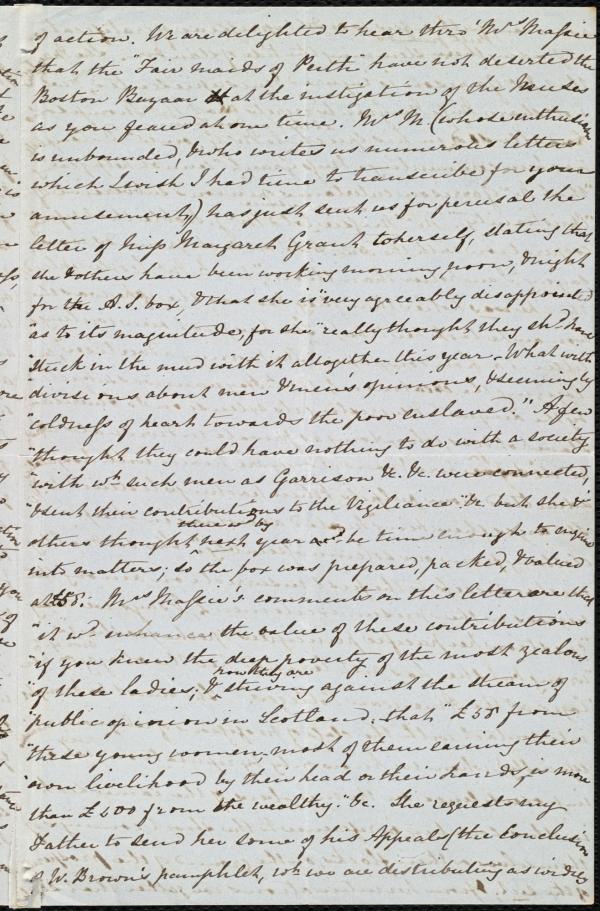 of action. We are delighted to hear thro' Mrs Massie
that the "Fair maids of Perth" have not deserted the
Boston Bazaar at the instigation of the Muses
as you feared at one time. Mrs M (whose enthusiasm
is unbounded, & who writes us numerous letters
which I wish I had time to transcribe for your
amusement,) has just sent us for perusal the
letter of Miss Margaret Grant to herself, stating that
she & others have been working morning, noon, & night
for the A.S. box, & that she is "very agreeably disappointed
"as to its magnitude, for she "really thought they shd have
"stuck in the mud with it altogether this year. What with
"divisions about men & men's opinions, & seeming by
"coldness of heart towards the poor enslaved." A few
"thought they could have nothing to do with a society
"with wh such men as Garrison &c. &c. were connected,
"& sent their contributions to the Vigilance "&c. but she &
others thought next year there wd be time enough to enquire
into matters; so the box was prepared, packed, & valued
at £58. Mrs Massie's comments on this letter are that
"it wd enhance the value of these contributions
"if you knew the deep poverty of the most zealous
"of these ladies; & how they are striving against the stream of
"public opinion in Scotland. that "£58 from
"these young women, most of them earning their
"own livelihood by their head or their hands, is more
than £500 from the wealthy." &c. She requests my
Father to send her some of his Appeals (the Conclusion
of W. Brown's pamphlet, wh we are distributing as widely